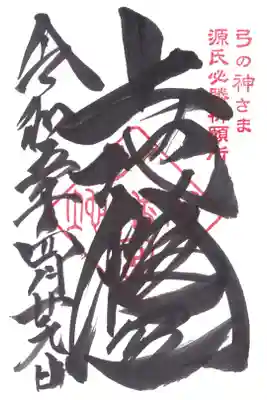 弓の神さま
源氏必勝祈願所
勝
令和五年四月廿九日